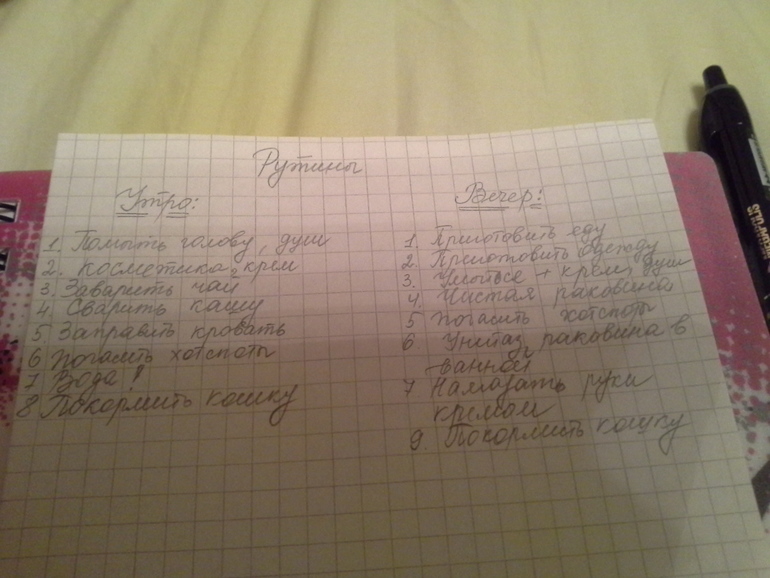 Рутины
Утро:
1. Помыть голову, душ
2. косметика, крем
3. Заварить чай
4 Сварить кашу
5 Заправить кровать
6 погасить хотспоты
7 Вода!
8 Покормить кошку
Вечер:
1. Приготовить еду
2. Приготовить одежду
3. Умыться + крем, душ
4. Чистая раковина
5 погасить хотспоты
6 Унитаз, раковина в
ванной
7 Намазать руки
кремом
9. Покормить кошку